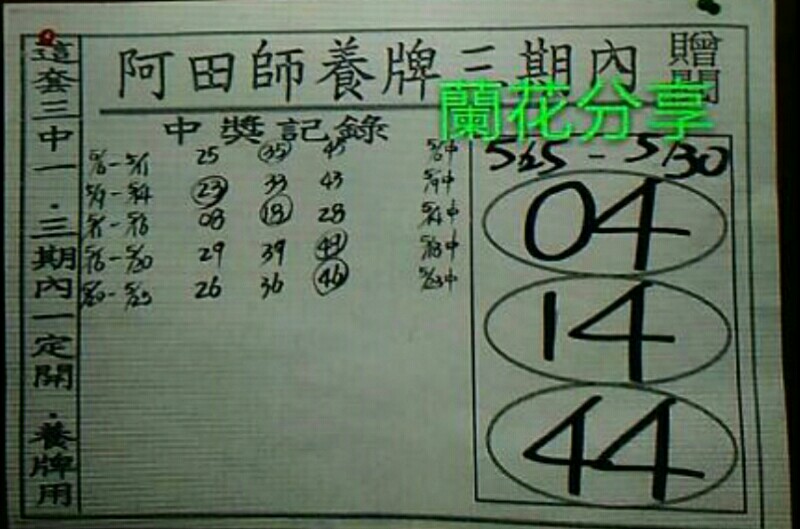 阿田師養牌三期內
贈閱
蘭花分享
這套三中一·三期內一定開·養牌用
中獎記錄
25 35 45
5/9-5/14 23 33 43 5/9中
08 18 28 5/14中
29 39 49 5/18中
5/20-5/25 26 36 46 5/23中
5/25-5/30
04
14
44